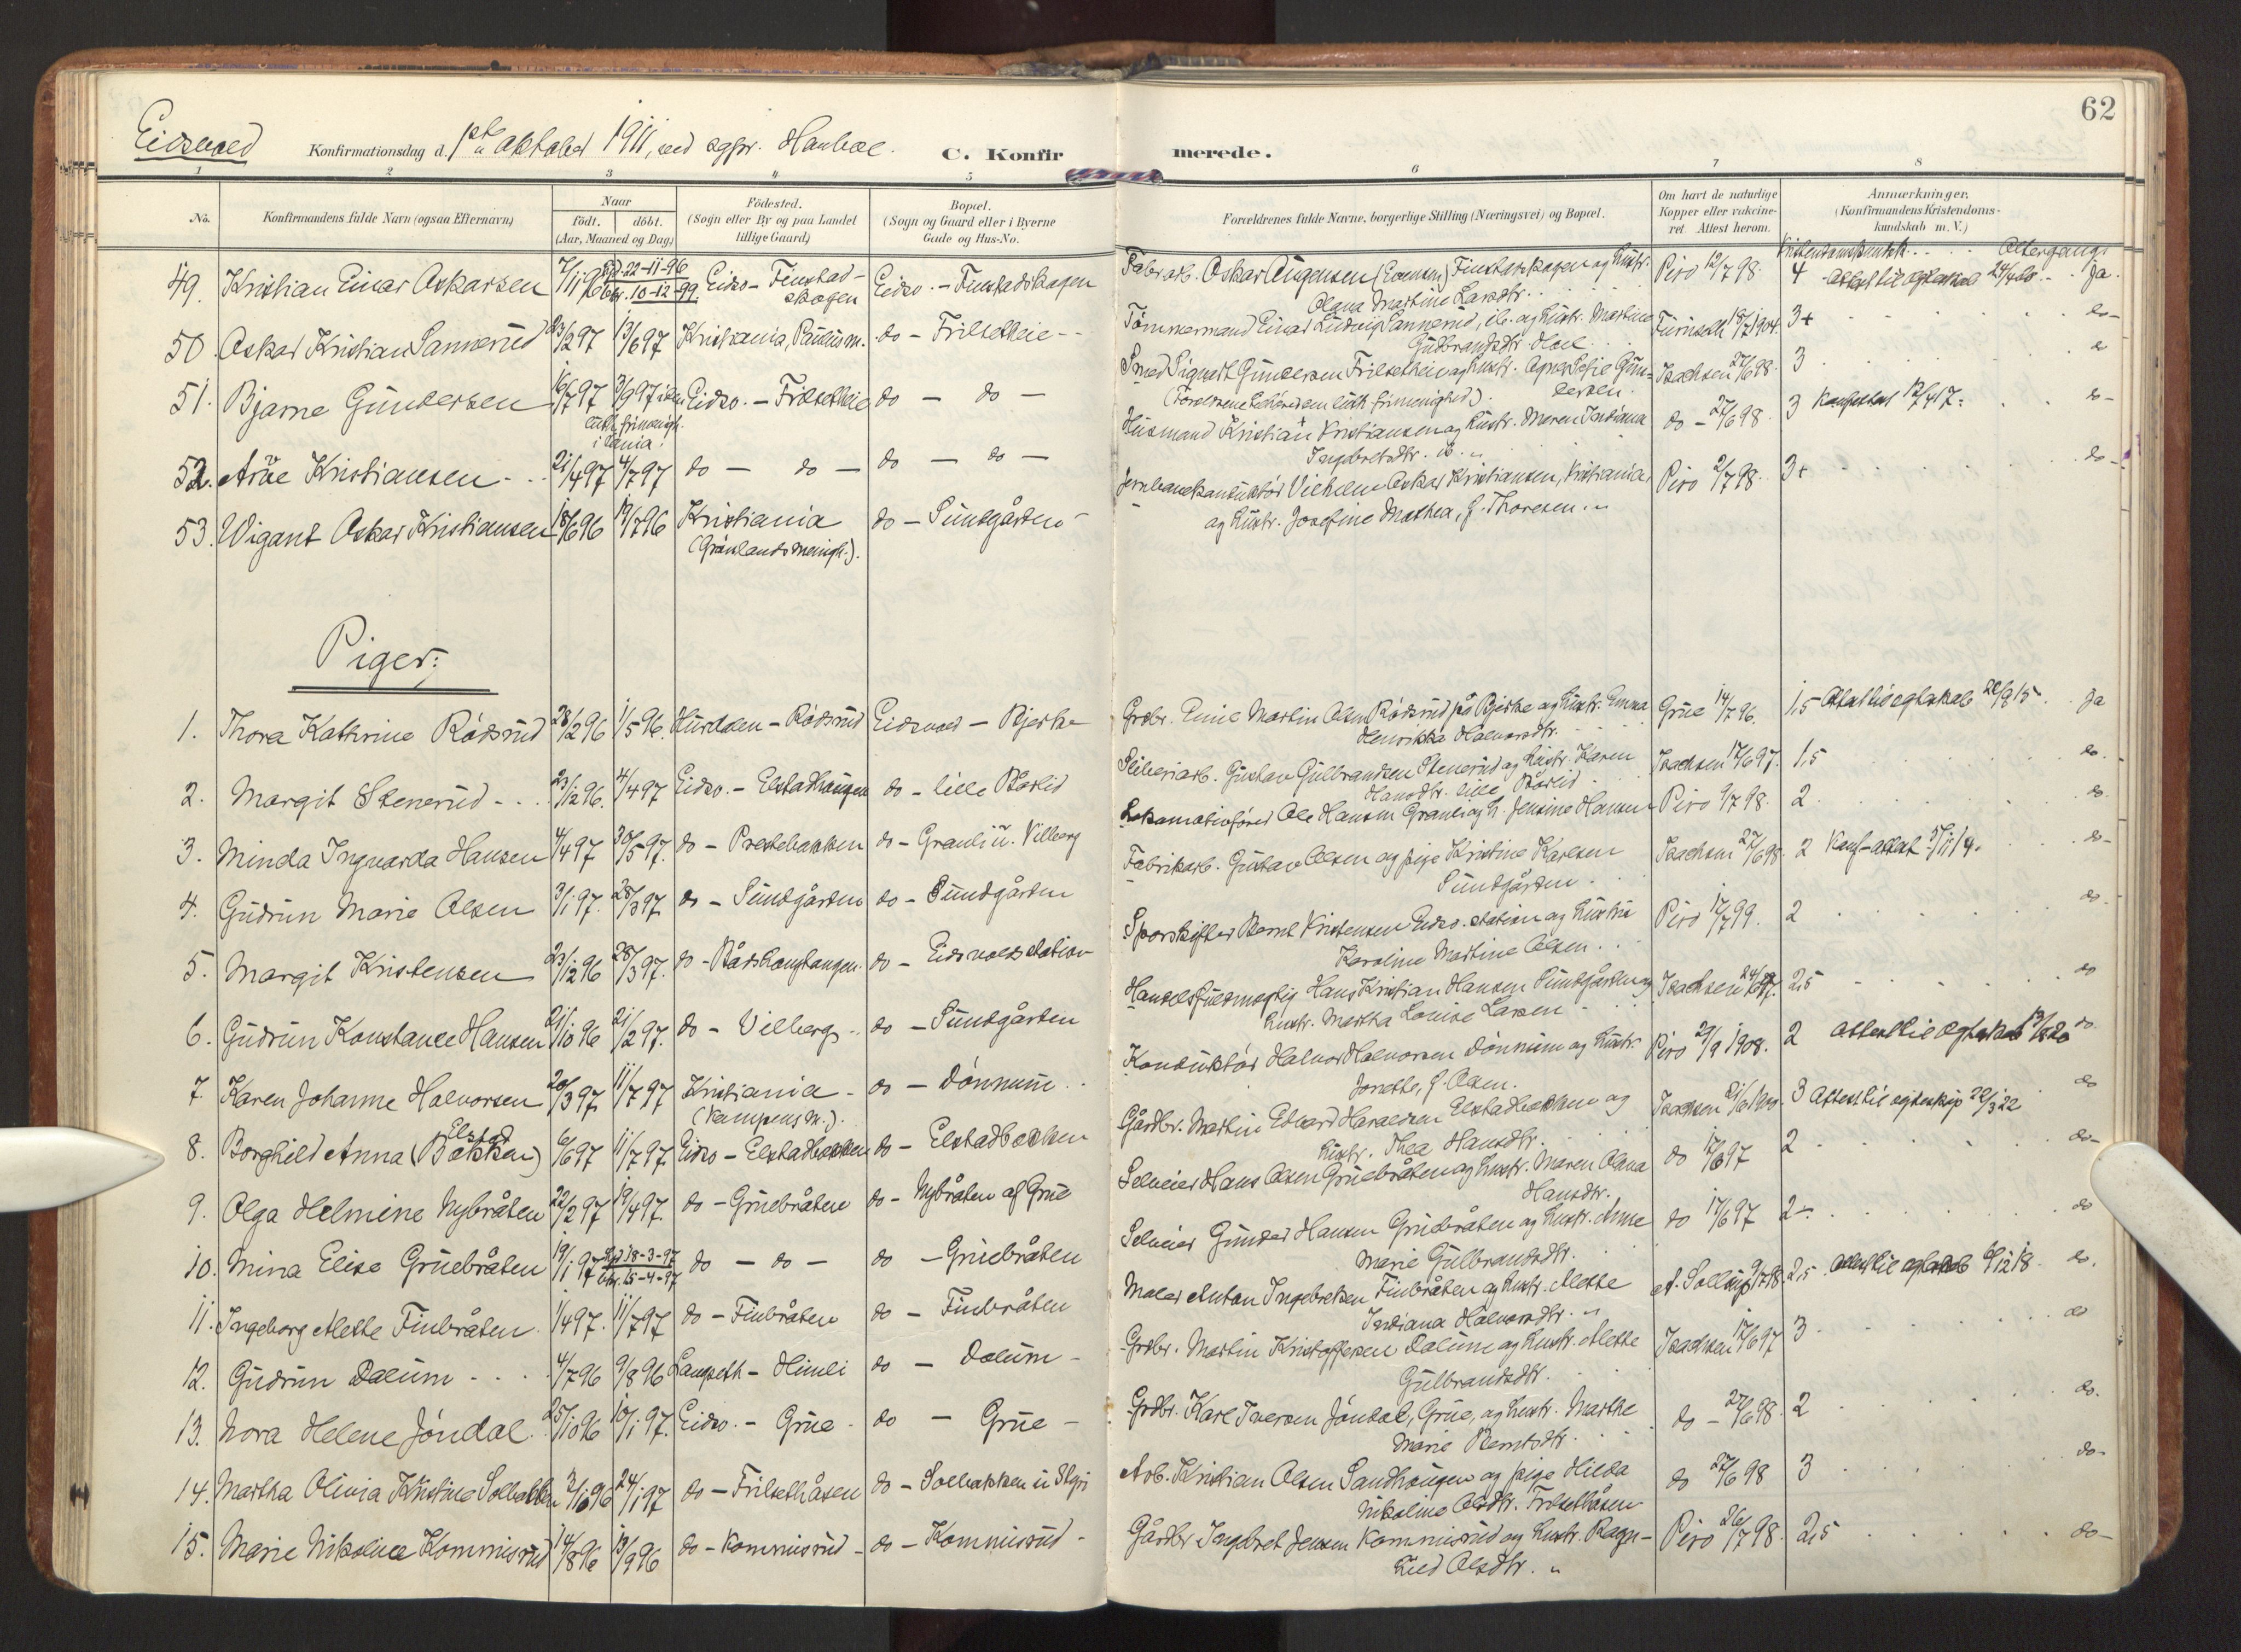 62
Eidsvold Konfirmationsdag d. 1ste oktober 1911, ved sgpr. Hanboe. C. Konfir merede.
1 2 3 4 5 6 7 8
No. Konfirmandens fulde Navn (ogsaa Efternavn) Naar födt. döbt. (Aar, Maaned og Dag) Födested. (Sogn eller By og paa Landet tillige Gaard) Bopæl. (Sogn og Gaard eller i Byerne Gade og Hus-No. Forældrenes fulde Navne, borgerlige Stilling (Næringsvei) og Bopæl. Om havt de naturlige Kopper eller vakcineret Attest herom. Anmærkninger. (Konfirmandens Kristendomskundskab m. V.)
Kristendomskundsk. Altergang:
49. Kristian Einar Oskarsen 7/11 96 22-11-96 10-12-99 Eidsv - Finstadskogen Eidsv. - Finstadskogen Fabr.arb. Oskar Finstadskogen og hustr. Olava Martine Larsdtr. Piro 12/7 98. 4 - Ja.
50. Oskar Kristian Sannerud 23/2 97 13/6 97 Kristiania, Paulus m. do - Frilsetheie - Tømmermand Einar Ludvig Sannerud, ib. og hustr. Martine Gudbrandsdtr. Furuseth 18/7 1904. 3+ do -
51. Bjarne Gundersen 16/7 97 3/9 97 i den luth. frimenigh. i Dania. Eidsv. - Frilsetheie do - do - Smed Sigvart Gundersen Frilsetheie og hustr. Agnes Sofie Gundersen. (Forældrene tilhører den luth. frimenighed). Isachsen 27/6 98. 3 do
52. Arve Kristiansen 21/4 97 4/7 97 do - do - do - do - Husmand Kristian Kristiansen og hustr. Maren Indiana Ingebretsdtr. ib. do - 27/6 98. 3 Konf.attest 12/4 17. do -
53. Wigant Oskar Kristiansen 18/6 96 19/7 96 Kristiania (Grønlands menigh.). do - Sundgården - Jernbanekonduktør Vilhelm Oskar Kristiansen, Kristiania, og hustr. Josefine Mathea, f. Thoresen. Piro 2/7 98. 3+ do -
Piger:
1. Thora Kathrine Rødsrud 28/2 96 1/5 96. Hurdalen - Rødsrud Eidsvold - Bjerke Grdbr. Emil Martin Olsen Rødsrud på Bjerke og hustr. Emma Henrikka Halvorsdtr. Grue 14/7 96. 1,5 Attest til egteskab 20/8 15. Ja
2. Margit Stenerud 23/12 96. 4/4 97 Eidsv. - Elstadhaugen do - lille Bårlid Sliberiarb. Gustav Gulbrandsen Stenerud og hustr. Karen Hansdtr. lille Bårlid Isachsen 17/6 97. 1,5 do.
3. Minda Ingvarda Hansen 4/4 97 30/5 97. do - Prestebakken do - Grauli u. Vilberg Lokomotivfører Ole Hansen Grauli og h. Jensine Hansen Piro 9/7 98. 2 do.
4. Gudrun Marie Olsen 3/1 97. 28/3 97 do - Sundgården do - Sundgården Fabrikarb. Gustav Olsen og pige Kristine Karlsen Sundgården. Isachsen 27/6 98. 2 Konf-attest do -
5. Margit Kristensen 23/12 96 28/3 97. do - Bårdshaugtangen. do - Eidsvold station Sporskifter Bernt Kristensen Eidsv. station og hustru Karoline Martine Olsen. Piro 12/7 99. 2 do.
6. Gudrun Konstance Hansen 21/10 96 21/2 97. do - Vilberg do - Sundgården Handelsfuldmægtig Hans Kristian Hansen Sundgården og hustr. Martha Louise Larsen Isachsen 2,5 do
7. Karen Johanne Halvorsen 20/3 97 11/7 97 Kristiania - (Kampens m.). do - Dønnum Konduktør Halvor Halvorsen Dønnum og hustr. Jonette, f. Olsen. Piro 29/9 1908. 2 Attest til egteskab do
8. Borghild Anna (Bakken) Elstad 6/6 97 11/7 97. Eidsv - Elstadbakken do - Elstadbakken Gårdbr. Martin Edvard Haraldsen Elstadbakken og hustr. Thea Hansdtr. Isachsen 21/6 1900. 3 Attest til egteskap 22/3 22 do
9. Olga Helmine Nybråten 22/2 97 19/4 97. do - Gruebråten do - Nybråten af Grue Selveier Hans Olsen Gruebråten og hustr. Maren Olava Hansdtr. do 17/6 97 2 do -
10. Mina Elise Gruebråten 19/1 97 18-3-97 15-4-97 do - do - do - Gruebråten Selveier Gunder Hansen Gruebråten og hustr. Anne Marie Gulbrandsdtr. do 17/6 97 2 - do
11. Ingeborg Mette Finbråten. 1/4 97. 11/7 97 do - Finbråten do - Finbråten Maler Anton Ingebretsen Finbråten og hustr. Mette Indiana Halvorsdtr. A. Solling 9/7 98. 2,5 Attest til egteskab do.
12. Gudrun Dalum 4/7 96 9/8 96 Langseth - Himli do - Dalum - Grdbr. Martin Kristoffersen Dalum og hustr. Mette Gulbrandsdtr. Isachsen 17/6 97 3 do
13. Nora Helene Jøndal. 25/10 96 10/1 97. Eidsv. - Grue do - Grue - Grdbr. Karl Iversen Jøndal, Grue, og hustr. Marthe Marie Berntsdtr. do - 27/6 98. 2 do.
14. Martha Olivia Kristine Solbakken 3/10 96 24/1 97 do - Frilsethåsen do - Solbakken u. Styri Arb. Kristian Olsen Sandhaugen og pige Hilda Nikoline Olsdtr. Frilsethåsen do 27/6 98 3 do -
15. Marie Nikoline Kommisrud 14/8 96 13/9 96 do - Kommisrud - do - Kommisrud - Gårdbr. Ingebret Jensen Kommisrud og hustr. Ragnhild Olsdtr. Piro 26/7 98. 2,5 do -